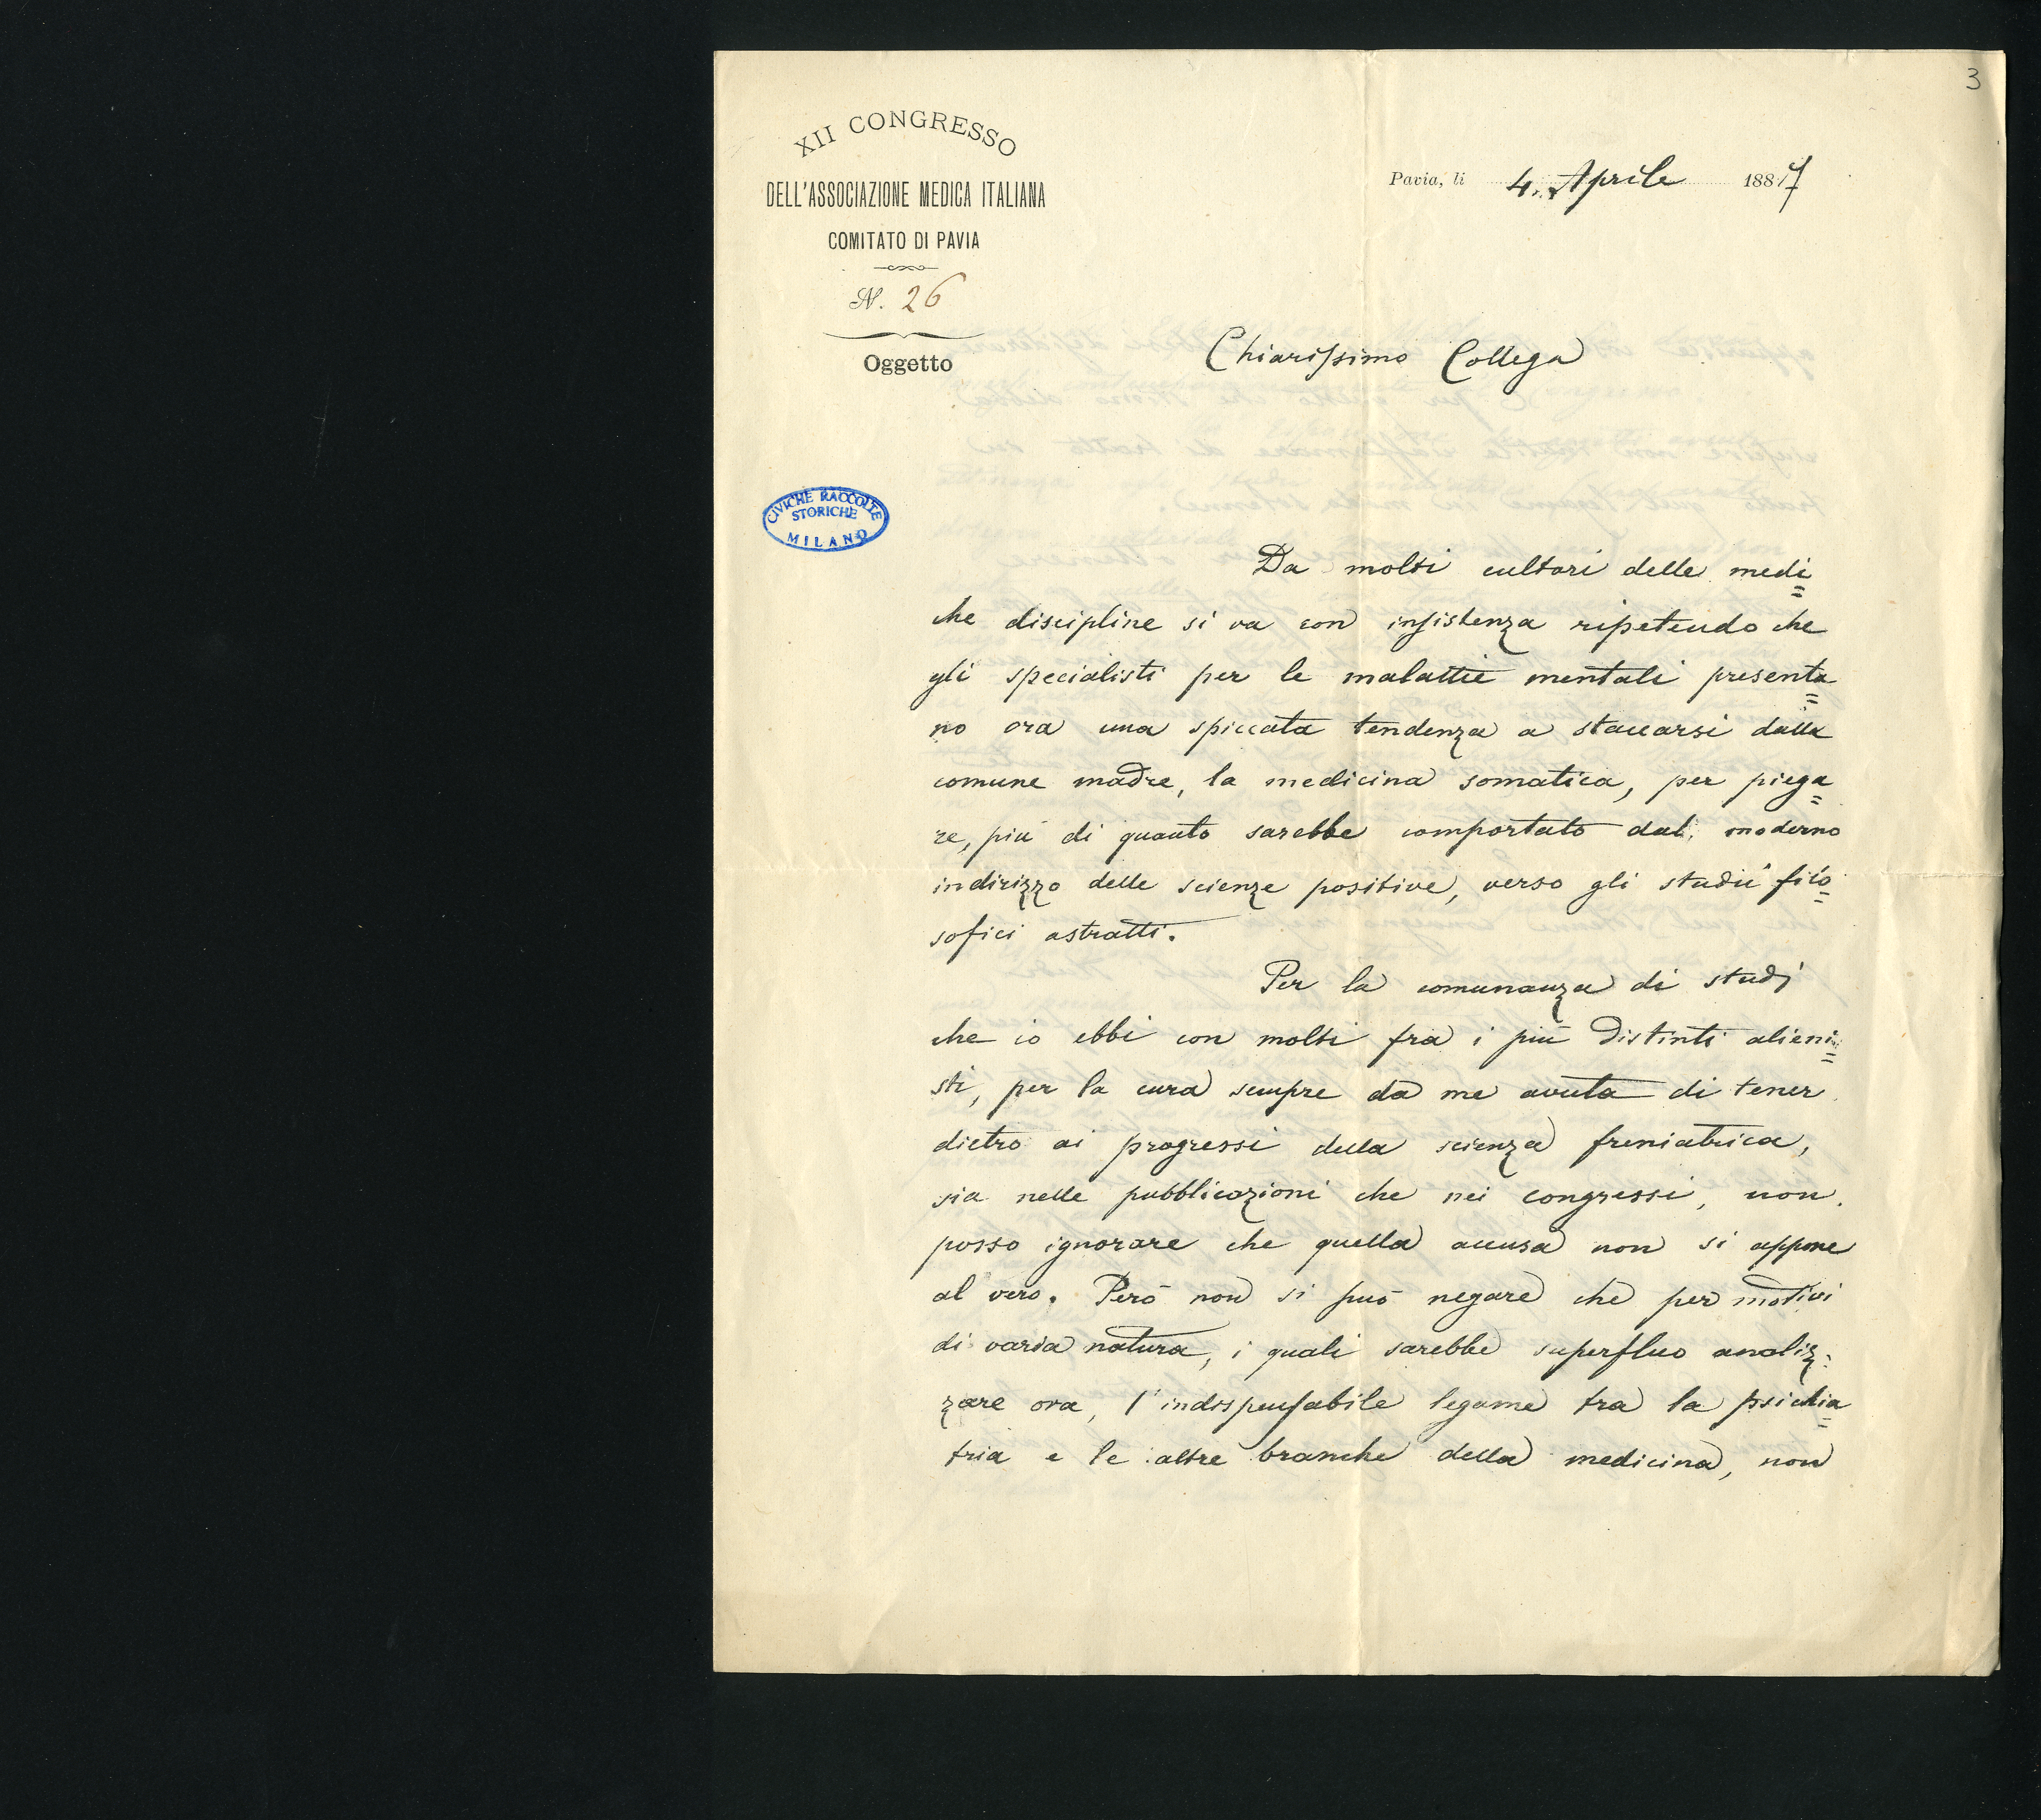 3
XII CONGRESSO
DELL'ASSOCIAZIONE MEDICA ITALIANA
COMITATO DI PAVIA
N. 26
Oggetto
Pavia, li 4. Aprile 1887
Chiarissimo Collega
CIVICHE RACCOLTE
STORICHE
MILANO
Da molti cultori delle medi=
che discipline si va con insistenza ripetendo che
gli specialisti per le malattie mentali presenta=
no ora una spiccata tendenza a staccarsi dalla
comune madre, la medicina somatica, per piega=
re, più di quanto sarebbe comportato dal moderno
indirizzo delle scienze positive, verso gli studii filo=
sofici astratti.
Per la comunanza di studj
che io ebbi con molti fra i più distinti alieni=
sti, per la cura sempre da me avuta di tener
dietro ai progressi della scienza freniatrica,
sia nelle pubblicazioni che nei congressi, non
posso ignorare che quella accusa non si appone
al vero. Però non si può negare che per motivi
di varia natura, i quali sarebbe superfluo analiz=
zare ora, l'indispensabile legame tra la psichia=
tria e le altre branche della medicina, non